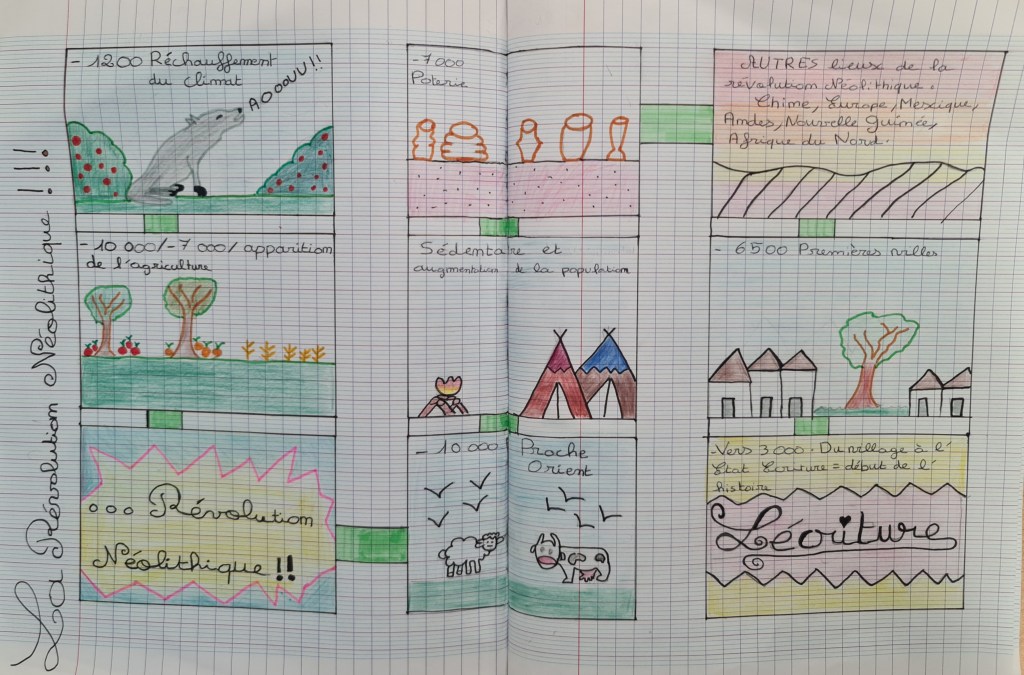 La Révolution Néolithique !!!
- 1200 Réchauffement
du climat
AOOOUU!!
- 10 000/-7 000/ apparition
de l'agriculture
ooo Révolution
Néolithique !!
- 10 000 Proche
Orient
Sédentaire et
augmentation de la population
-7000
Poterie
AUTRES lieux de la
révolution Néolithique.
Chine, Europe, Mexique,
Andes, Nouvelle Guinée,
Afrique du Nord.
- 6500 Premières villes
-Vers 3000. Du village à l'
Etat Ecriture = début de l'
histoire
L'écriture